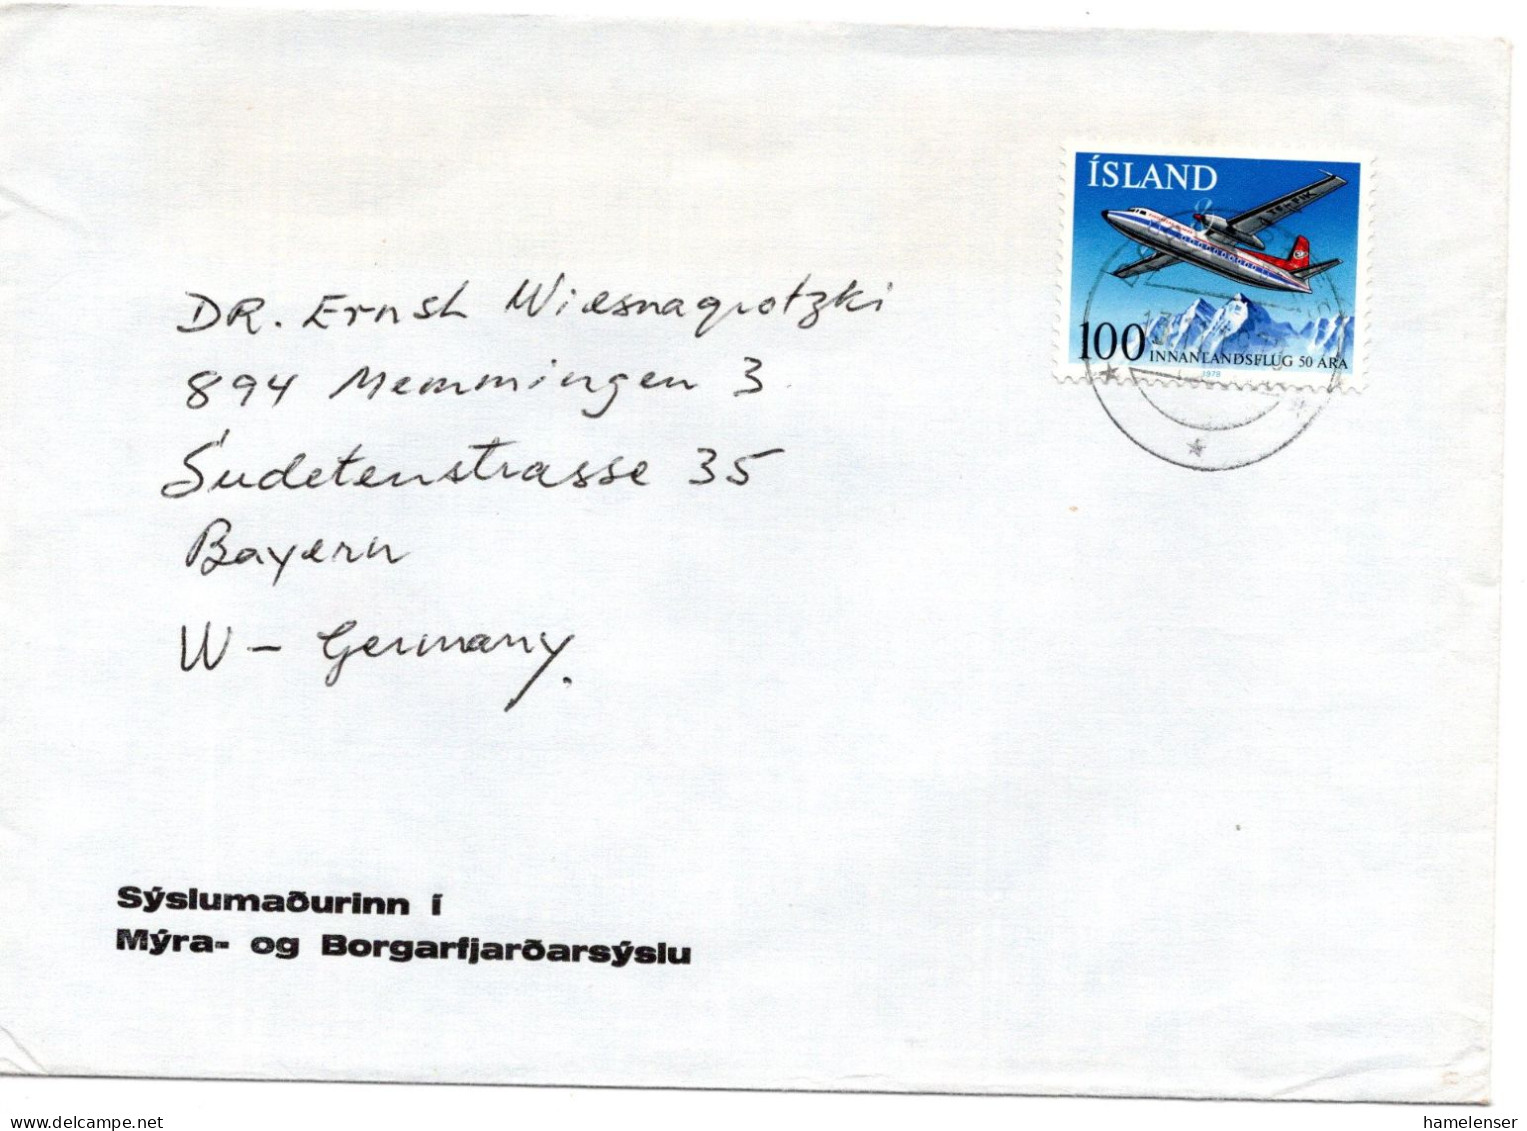 ÍSLAND
TF-FIK
100 INNANLANDSFLUG 50 ÁRA
1978
DR. Ernst Wiesnagrotzki
894 Memmingen 3
Sudetenstrasse 35
Bayern
W - Germany.
Sýslumaðurinn í
Mýra- og Borgarfjarðarsýslu
www.delcampe.net
hamelenser